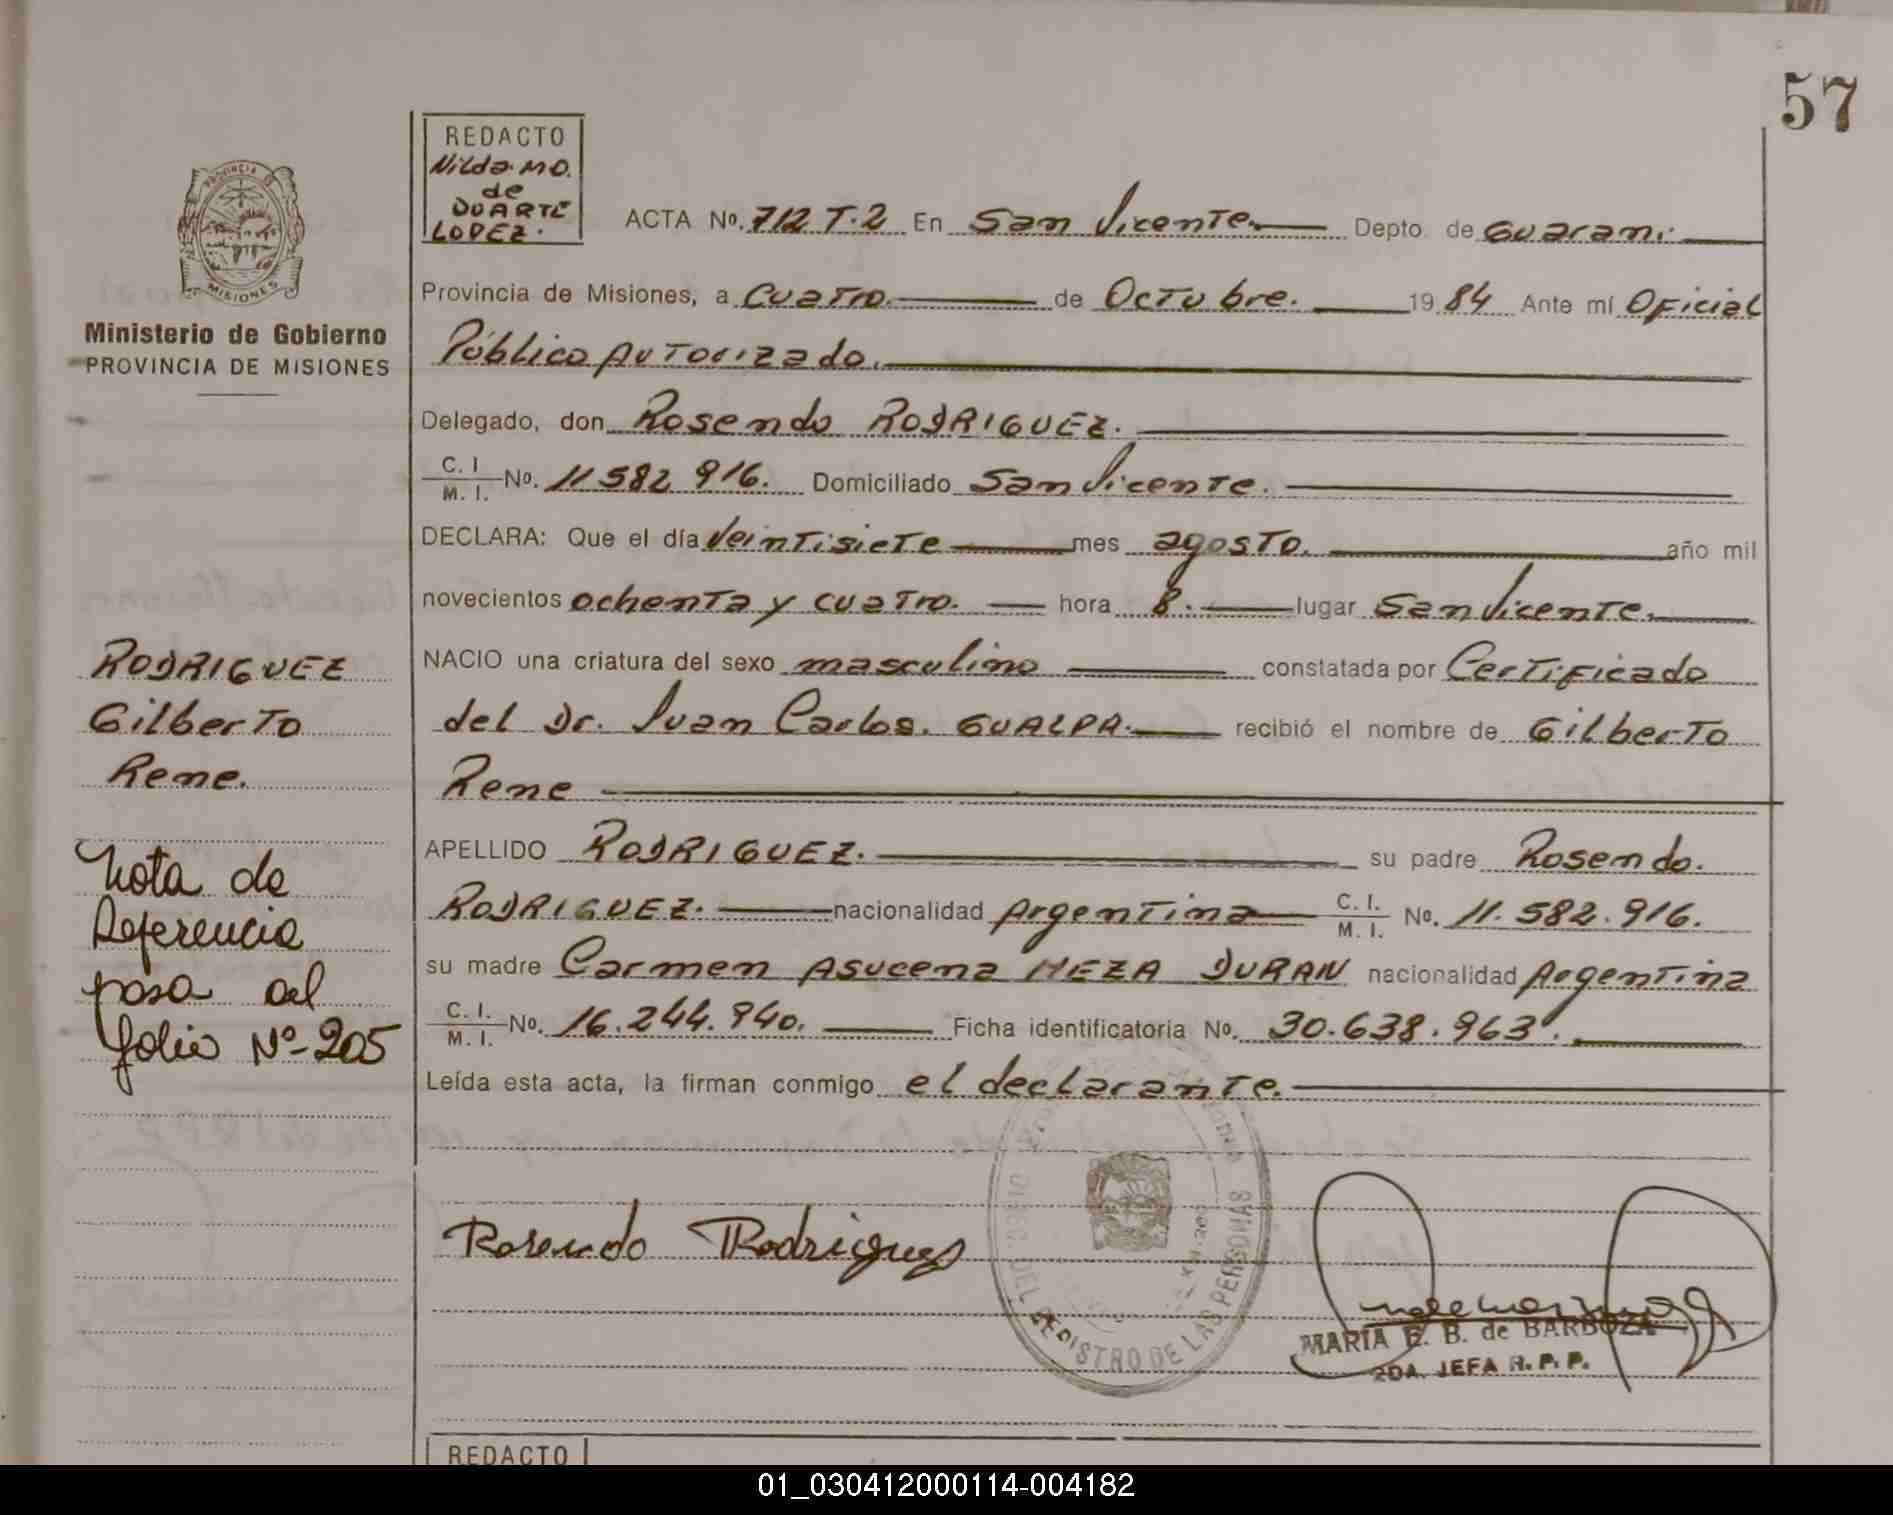 57
REDACTO
Nilda. MO.
de
DUARTE
LOPEZ.
ACTA No. 712 T.2 En San Vicente. Depto. de Guarani.
PROVINCIA DE
MISIONES
Ministerio de Gobierno
PROVINCIA DE MISIONES
Provincia de Misiones, a Cuatro. de Octubre. 1984 Ante mí Oficial
Público Autorizado.
Delegado, don Rosendo RODRIGUEZ.
C. I. / M. I. No. 11 582 916. Domiciliado San Vicente.
DECLARA: Que el día Veintisiete mes agosto. año mil
novecientos ochenta y cuatro. hora 8. lugar San Vicente.
NACIO una criatura del sexo masculino constatada por Certificado
del Dr. Juan Carlos. GUALPA. recibió el nombre de Gilberto
Rene
APELLIDO RODRIGUEZ. su padre Rosendo.
RODRIGUEZ. nacionalidad Argentina C. I. / M. I. No. 11.582.916.
su madre Carmen Asucena MEZA DURAN nacionalidad Argentina
C. I. / M. I. No. 16.244.940. Ficha identificatoria No. 30.638.963.
Leída esta acta, la firman conmigo el declarante.
RODRIGUEZ
Gilberto
Rene.
Nota de
Referencia
pasa al
folio Nº-205
Rosendo Rodriguez
DIREC. DEL REGISTRO DE LAS PERSONAS
MARIA E. B. de BARBOZA
2DA. JEFA R. P. P.
REDACTO
01_030412000114-004182